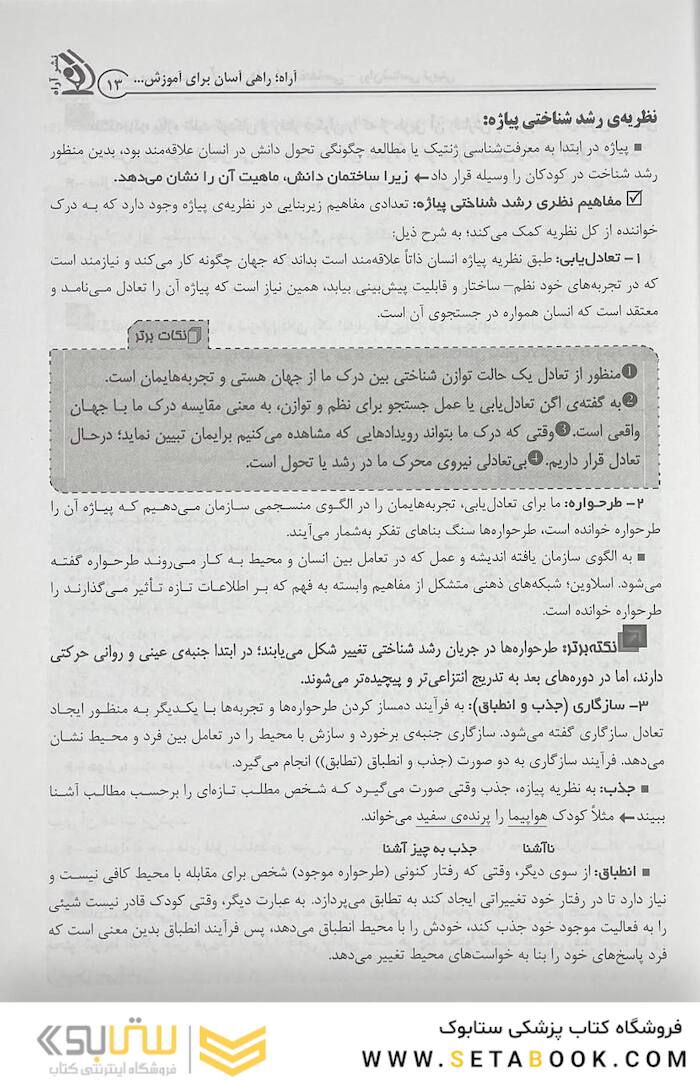 نشر آراه
۱۳
آراه؛ راهی آسان برای آموزش...
نظریه‌ی رشد شناختی پیاژه:
■ پیاژه در ابتدا به معرفت‌شناسی ژنتیک یا مطالعه چگونگی تحول دانش در انسان علاقه‌مند بود، بدین منظور
رشد شناخت در کودکان را وسیله قرار داد ← زیرا ساختمان دانش، ماهیت آن را نشان می‌دهد.
☑ مفاهیم نظری رشد شناختی پیاژه: تعدادی مفاهیم زیربنایی در نظریه‌ی پیاژه وجود دارد که به درک
خواننده از کل نظریه کمک می‌کند؛ به شرح ذیل:
۱- تعادل‌یابی: طبق نظریه پیاژه انسان ذاتاً علاقه‌مند است بداند که جهان چگونه کار می‌کند و نیازمند است
که در تجربه‌های خود نظم– ساختار و قابلیت پیش‌بینی بیابد، همین نیاز است که پیاژه آن را تعادل می‌نامد و
معتقد است که انسان همواره در جستجوی آن است.
نکات برتر
❶ منظور از تعادل یک حالت توازن شناختی بین درک ما از جهان هستی و تجربه‌هایمان است.
❷ به گفته‌ی اگن تعادل‌یابی یا عمل جستجو برای نظم و توازن، به معنی مقایسه درک ما با جهان
واقعی است. ❸ وقتی که درک ما بتواند رویدادهایی که مشاهده می‌کنیم برایمان تبیین نماید؛ درحال
تعادل قرار داریم. ❹ بی‌تعادلی نیروی محرک ما در رشد یا تحول است.
۲- طرحواره: ما برای تعادل‌یابی، تجربه‌هایمان را در الگوی منسجمی سازمان می‌دهیم که پیاژه آن را
طرحواره خوانده است، طرحواره‌ها سنگ بناهای تفکر به‌شمار می‌آیند.
■ به الگوی سازمان یافته اندیشه و عمل که در تعامل بین انسان و محیط به کار می‌روند طرحواره گفته
می‌شود. اسلاوین؛ شبکه‌های ذهنی متشکل از مفاهیم وابسته به فهم که بر اطلاعات تازه تأثیر می‌گذارند را
طرحواره خوانده است.
نکته‌برتر: طرحواره‌ها در جریان رشد شناختی تغییر شکل می‌یابند؛ در ابتدا جنبه‌ی عینی و روانی حرکتی
دارند، اما در دوره‌های بعد به تدریج انتزاعی‌تر و پیچیده‌تر می‌شوند.
۳- سازگاری (جذب و انطباق): به فرآیند دمساز کردن طرحواره‌ها و تجربه‌ها با یکدیگر به منظور ایجاد
تعادل سازگاری گفته می‌شود. سازگاری جنبه‌ی برخورد و سازش با محیط را در تعامل بین فرد و محیط نشان
می‌دهد. فرآیند سازگاری به دو صورت (جذب و انطباق (تطابق)) انجام می‌گیرد.
■ جذب: به نظریه پیاژه، جذب وقتی صورت می‌گیرد که شخص مطلب تازه‌ای را برحسب مطالب آشنا
ببیند ← مثلاً کودک هواپیما را پرنده‌ی سفید می‌خواند.
ناآشنا جذب به چیز آشنا
■ انطباق: از سوی دیگر، وقتی که رفتار کنونی (طرحواره موجود) شخص برای مقابله با محیط کافی نیست و
نیاز دارد تا در رفتار خود تغییراتی ایجاد کند به تطابق می‌پردازد. به عبارت دیگر، وقتی کودک قادر نیست شیئی
را به فعالیت موجود خود جذب کند، خودش را با محیط انطباق می‌دهد، پس فرآیند انطباق بدین معنی است که
فرد پاسخ‌های خود را بنا به خواست‌های محیط تغییر می‌دهد.
فروشگاه کتاب پزشکی ستابوک
WWW.SETABOOK.COM
ستابوک
فروشگاه اینترنتی کتاب